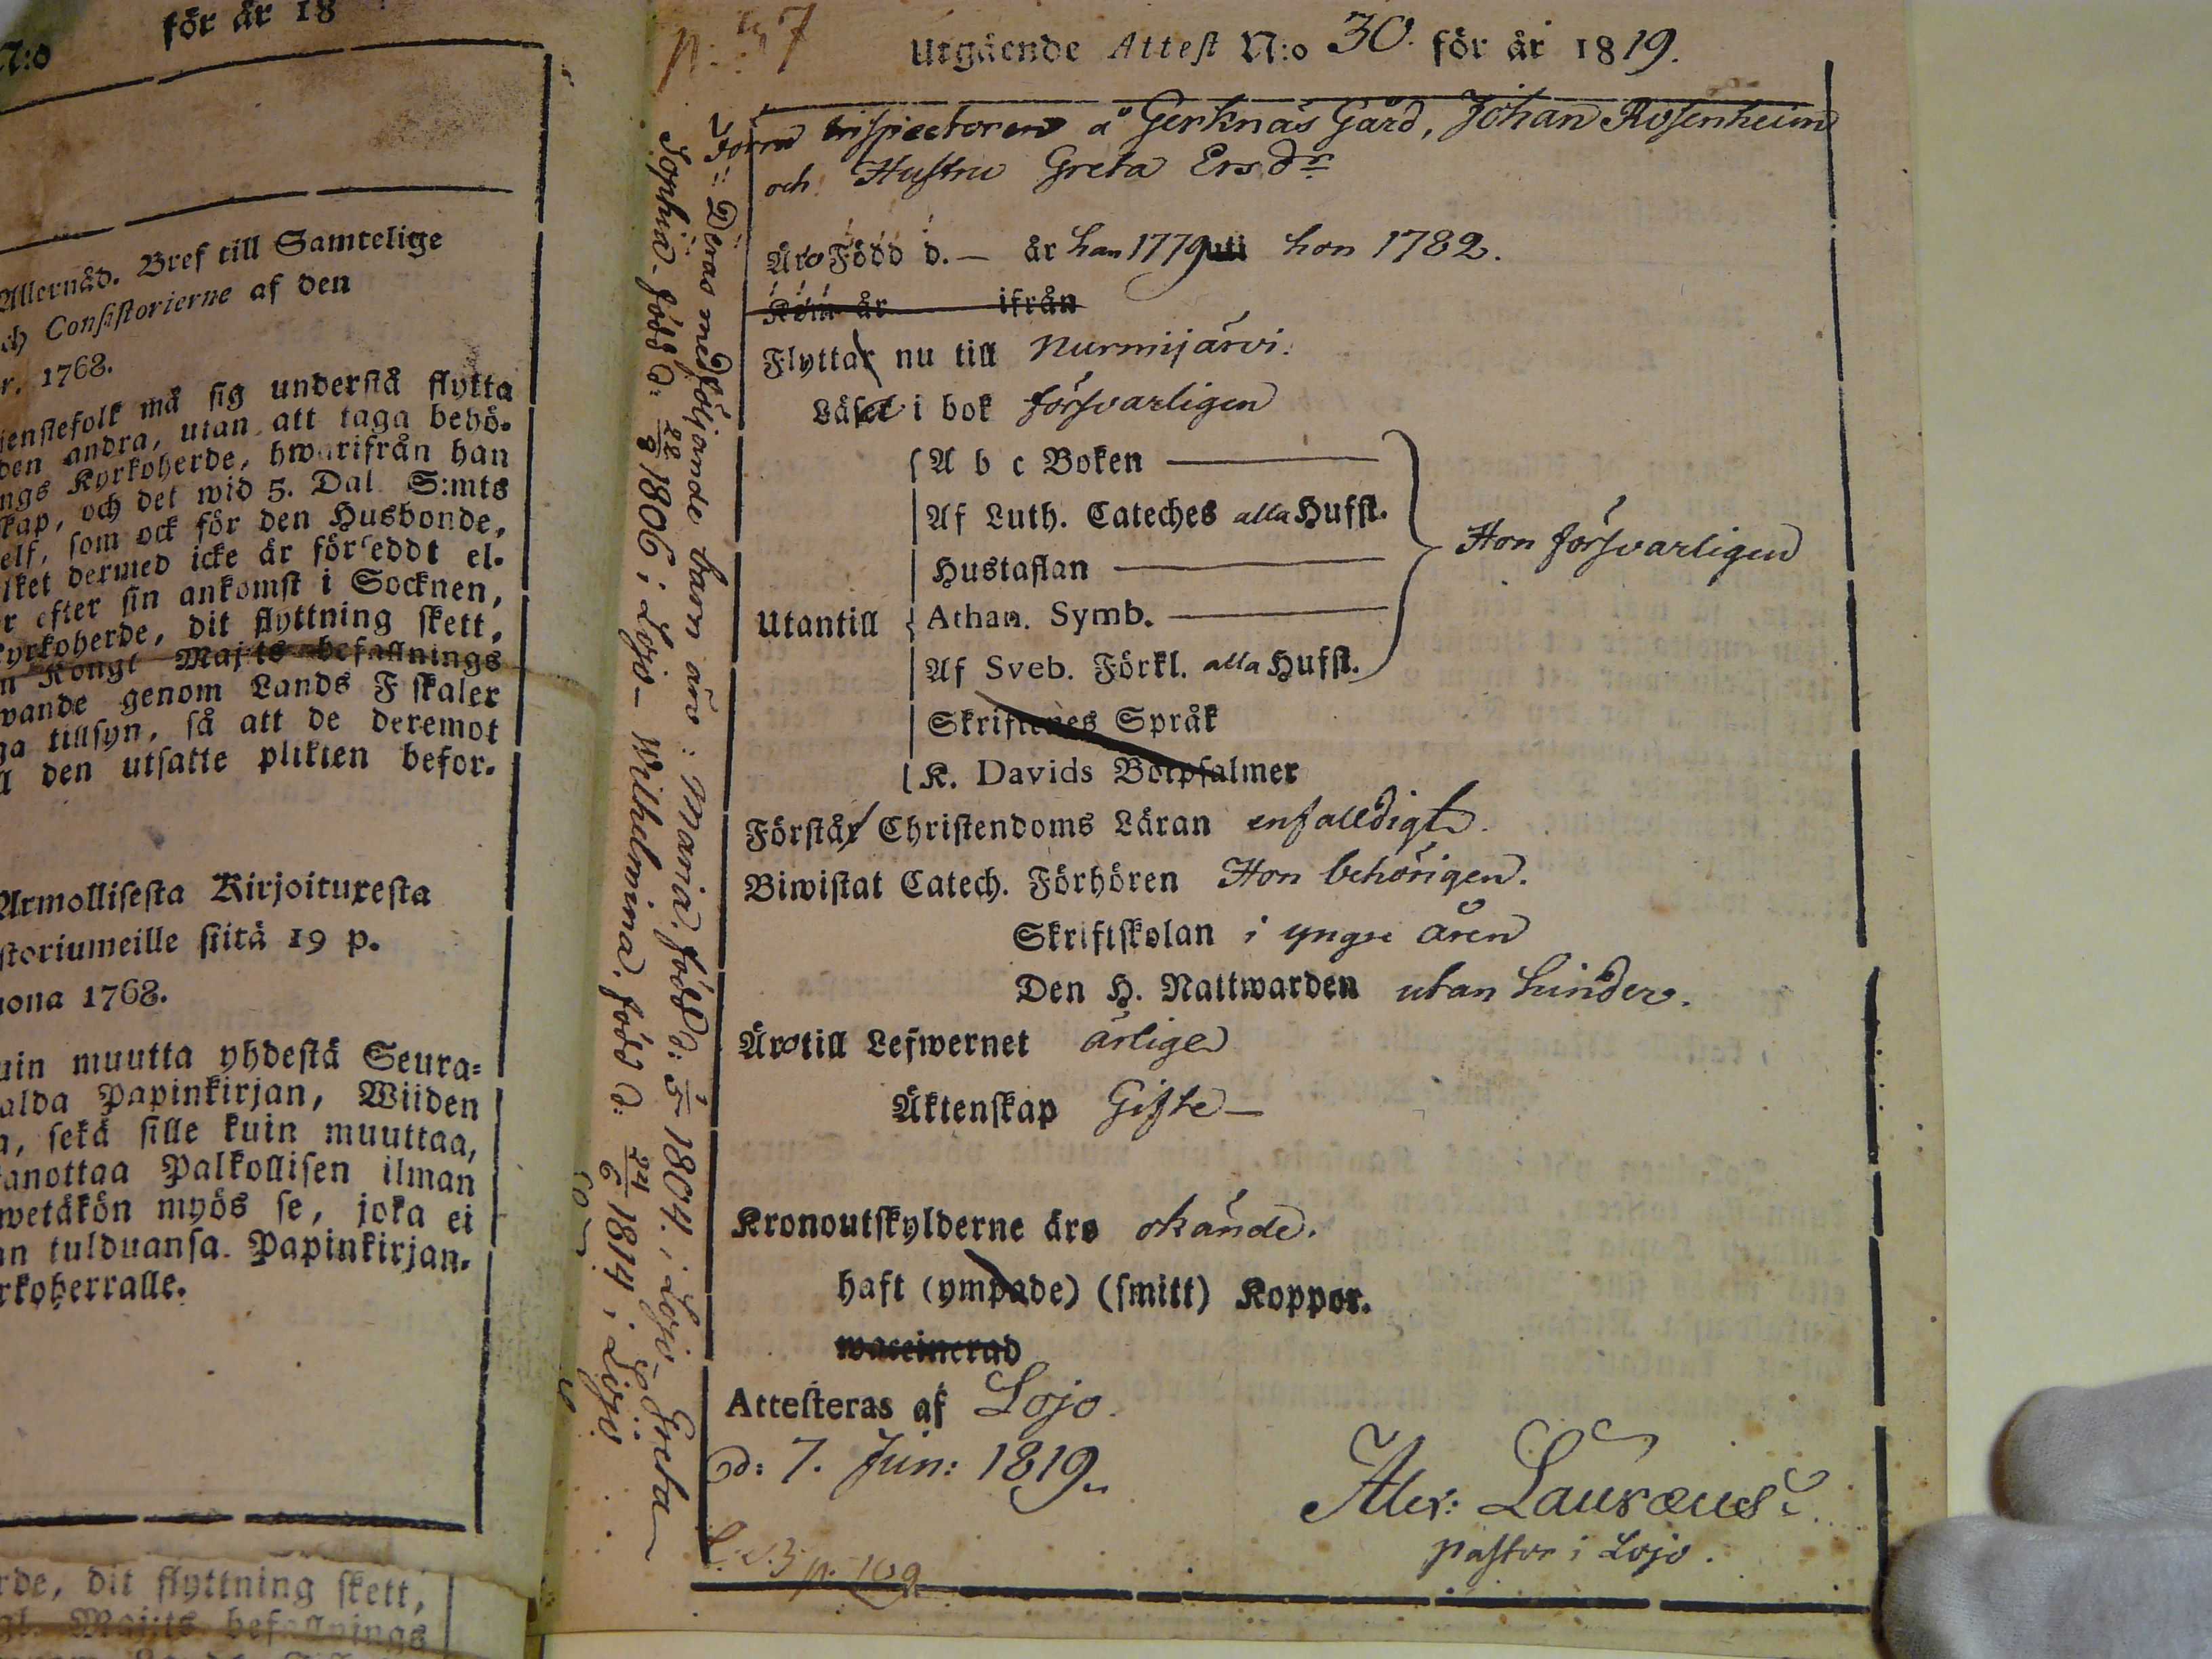 för år 18
N:o
Allernåd. Bref till Samtelige
ch Consistorierne af den
r. 1768.
ienstefolk må sig understå flytta
den andra, utan att taga behö-
ngs Kyrkoherde, hwarifrån han
kap, och det wid 5. Dal. S:mts
elf, som ock för den Husbonde,
lket dermed icke är försedt el-
r efter sin ankomst i Socknen,
yrkoherde, dit flyttning skett,
n Kongl Maj:ts befallnings
wande genom Lands Fiskaler
ga tillsyn, så att de deremot
a den utsatte plikten befor-
Armollisesta Kirjoituxesta
storiumeille siitä 19 p.
uona 1768.
uin muutta yhdestä Seura-
alda Papinkirjan, Wiiden
a, sekä sille kuin muuttaa,
anottaa Palkollisen ilman
wetäkön myös se, joka ei
an tulduansa Papinkirjan-
rkoherralle.
rde, dit flyttning skett,
gl. Maj:ts befallnings
Utgående Attest N:o 30. för år 1819.
Förra Inspectoren å Gerknäs Gård, Johan Rosenheim
och Hustru Greta Ersdr
Äro Född d. — år han 1779 hon 1782.
Kom år ifrån
Flyttar nu till Nurmijärvi.
Läsa i bok försvarligen
A b c Boken
Af Luth. Cateches alla Hufst.
Hustaflan
Hon försvarligen
Utantill
Athan. Symb.
Af Sveb. Förkl. alla Hufst.
Skriftenes Språk
K. Davids Botpsalmer
Förstår Christendoms Läran enfaldigt.
Biwistat Catech. Förhören Hon behörigen.
Skriftskolan i yngre åren
Den H. Nattwarden utan hinder.
Äro till Lefwernet ärlige
Äktenskap Gifte —
Kronoutskylderne äro okände.
haft (ympade) (smitt) Koppor.
waccinerad
Attesteras af Lojo.
d: 7. Jun: 1819.
Alex: Lauræus
Pastor i Lojo.
p. 109
Deras medföljande barn äro: Maria född d: 1/5 1804. i Lojo — Greta
Sophia född d: 22/8 1806 i Lojo — Wilhelmina född d: 24/6 1814 i Lojo